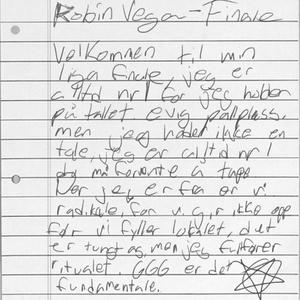 Robin Vegan - Finale
Velkommen til min
liga finale, jeg er
alltid nr1 for jeg hober
på tallet evig pallplass,
men jeg hader ikke en
tale, jeg er alltid nr1
du må forvente å tape
Der jeg er fra er vi
radikale, for vi gir ikke opp
før vi fyller lokalet, det
er tungt as men jeg fullfører
ritualet. GGG er det
fundamentale.